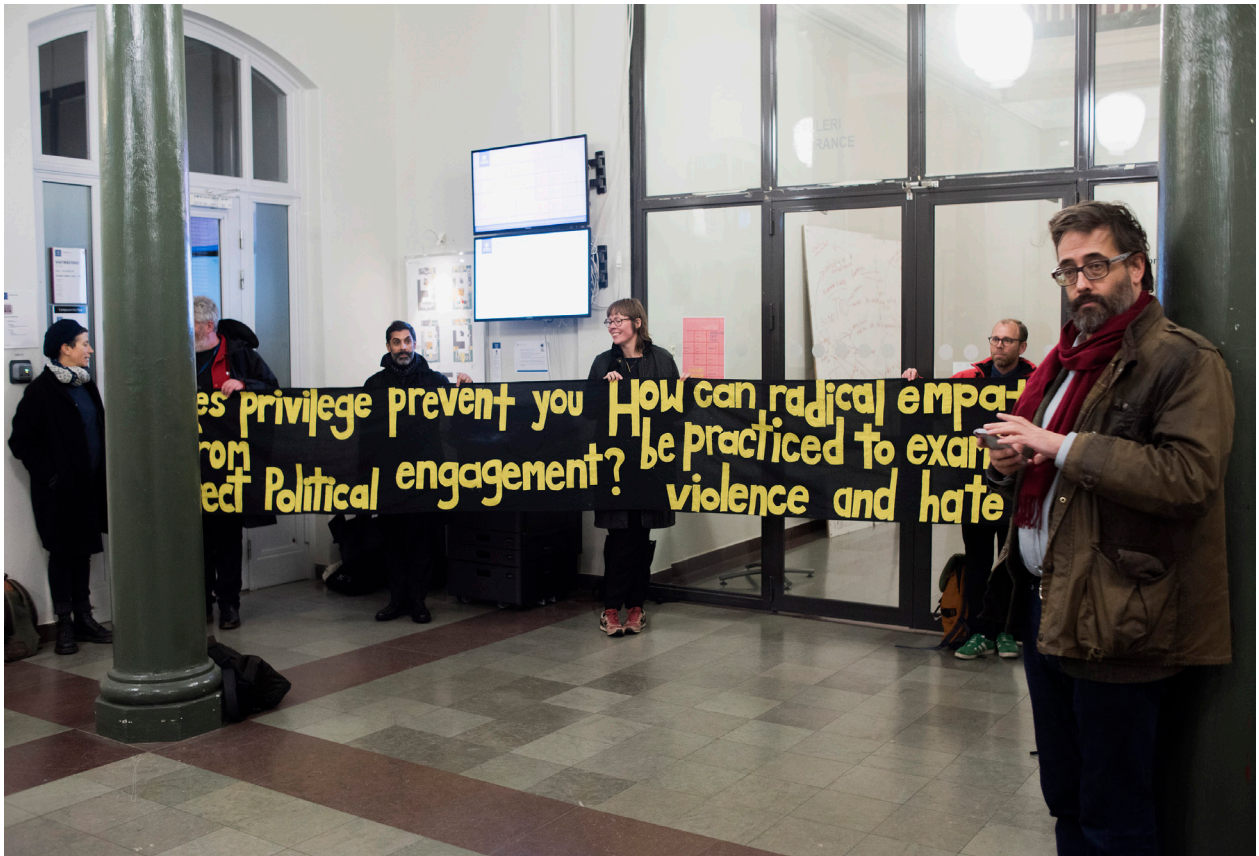 es privilege prevent you
rom
ect Political engagement?
How can radical empat
be practiced to exam
violence and hate
LERI
RANCE